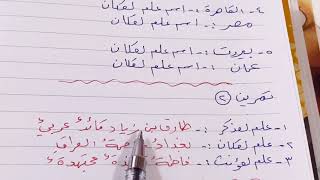 ٤- القاهرة :- اسم علم لمكان
مصر :- اسم علم لمكان
٥- بيروت :- اسم علم لمكان
عمان :- اسم علم لمكان
تمرين (٢)
١- علم لمذكر :- طارق بن زياد قائد عربي
٢- علم لمكان :- بغداد العراق
٣- علم لمؤنث :- فاطمة مجتهدة